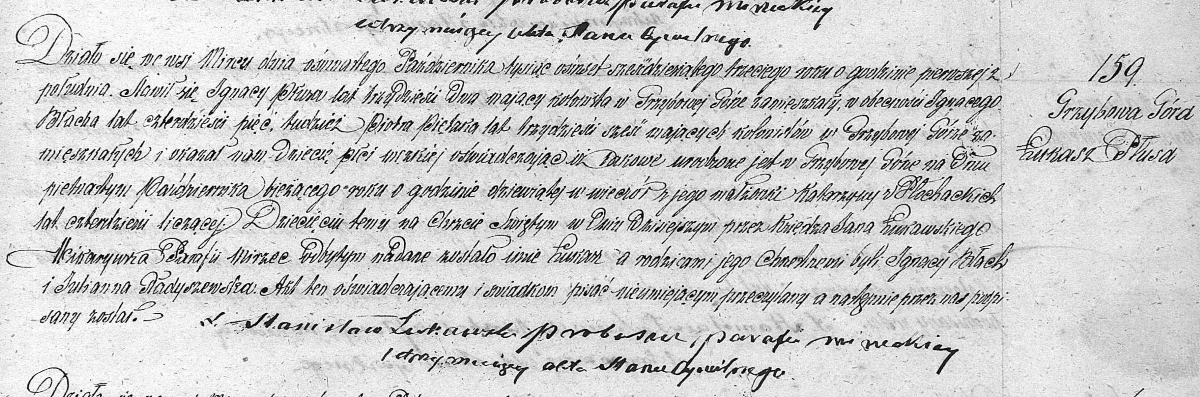 parafii mirzeckiey
utrzymuiący Akta Stanu Cywilnego.
Działo się we wsi Mircu dnia ósmnastego Października tysiąc ośmset sześdziesiątego trzeciego roku o godzinie pierwszej z
południa. Stawił się Ignacy Płusa lat trzydzieści dwa mający kolonista w Grzybowej Górze zamieszkały, w obecności Ignacego
Błacha lat czterdzieści pięć, tudzież Piotra Pietaka lat trzydzieści sześć mających kolonistów w Grzybowej Górze za-
mieszkałych i okazał nam Dziecię płci męzkiej oświadczając iż takowe urodzone jest w Grzybowej Górze na Dniu
Października bieżącego roku o godzinie dziewiątej w wieczór z jego małżonki Katarzyny z Błachackich
lat czterdzieści liczącej. Dziecięciu temu na Chrzcie Świętym w Dniu Dzisiejszym przez Księdza Jana Żurawskiego
Wikaryusza Parafii Mirzec odbytym nadane zostało imie Łukasz a rodzicami jego Chrzestnemi byli Ignacy Błach
i Julianna Radyszewska. Akt ten oświadczającemu i świadkom pisać nieumiejącym przeczytany a następnie przez nas podpi-
sany został.
X. Stanisław Żukowski proboszcz parafii mirzeckiey
utrzymuiący akta Stanu Cywilnego.
159.
Grzybowa Góra
Łukasz Płusa
Działo się